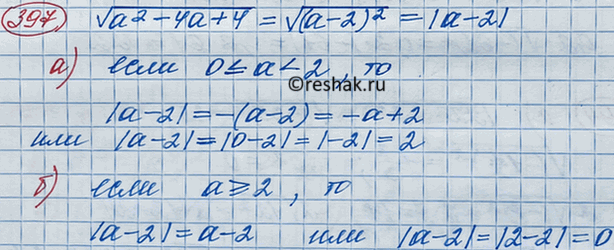 397 √(a²-4a+4) = √((a-2)²) = |a-2|
а) если 0≤a<2, то
©reshak.ru
|a-2|=-(a-2)=-a+2
или |a-2|=|0-2|=|-2|=2
б) если a≥2, то
|a-2|=a-2 или |a-2|=|2-2|=0